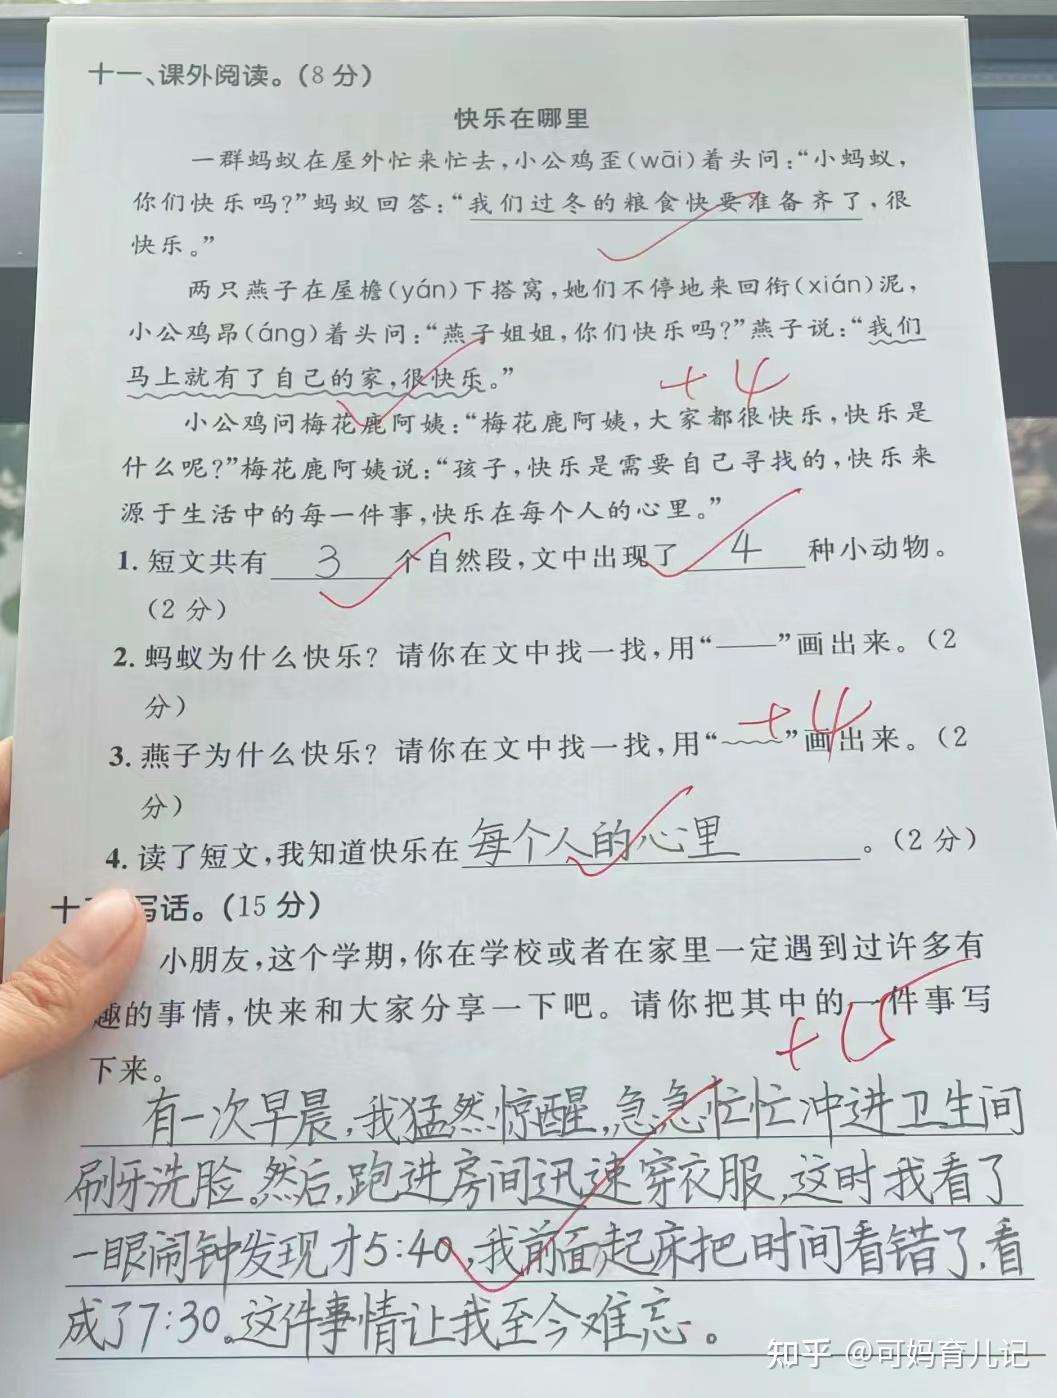 十一、课外阅读。(8 分)
快乐在哪里
一群蚂蚁在屋外忙来忙去,小公鸡歪(wāi)着头问:“小蚂蚁,
你们快乐吗?”蚂蚁回答:“我们过冬的粮食快要准备齐了,很
快乐。”
两只燕子在屋檐(yán)下搭窝,她们不停地来回衔(xián)泥,
小公鸡昂(áng)着头问:“燕子姐姐,你们快乐吗?”燕子说:“我们
马上就有了自己的家,很快乐。”
+4
小公鸡问梅花鹿阿姨:“梅花鹿阿姨,大家都很快乐,快乐是
什么呢?”梅花鹿阿姨说:“孩子,快乐是需要自己寻找的,快乐来
源于生活中的每一件事,快乐在每个人的心里。”
1. 短文共有 3 个自然段,文中出现了 4 种小动物。
(2 分)
2. 蚂蚁为什么快乐? 请你在文中找一找,用“——”画出来。(2
分)
+4
3. 燕子为什么快乐? 请你在文中找一找,用“﹏﹏”画出来。(2
分)
4. 读了短文,我知道快乐在 每个人的心里 。(2 分)
十 写话。(15 分)
小朋友,这个学期,你在学校或者在家里一定遇到过许多有
趣的事情,快来和大家分享一下吧。请你把其中的一件事写
+15
下来。
有一次早晨,我猛然惊醒,急急忙忙冲进卫生间
刷牙洗脸。然后,跑进房间迅速穿衣服,这时我看了
一眼闹钟发现才5:40,我前面起床把时间看错了,看
成了7:30。这件事情让我至今难忘。
知乎 @可妈育儿记